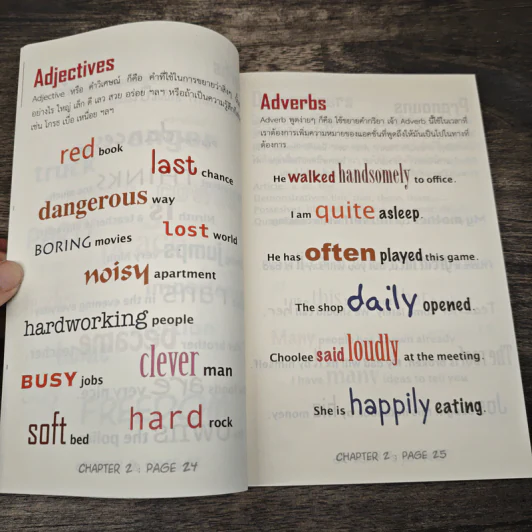 Adjectives
Adjective หรือ คำวิเศษณ์ ก็คือ คำที่ใช้ในการขยายว่าสิ่งๆ
อย่างไร ใหญ่ เล็ก ดี เลว สวย อร่อย ฯลฯ หรือถ้าเป็นความรู้สึกก็
เช่น โกรธ เบื่อ เหนื่อย ฯลฯ
red book
last chance
dangerous way
BORING movies
lost world
noisy apartment
hardworking people
clever man
BUSY jobs
soft bed
hard rock
CHAPTER 2 : PAGE 24
Adverbs
Adverb พูดง่ายๆ ก็คือ ใช้ขยายคำกริยา เจ้า Adverb นี้ใช้ในเวลาที่
เราต้องการเพิ่มความหมายของแอคชั่นที่พูดถึงให้มันเป็นไปในทางที่
ต้องการ
He walked handsomely to office.
I am quite asleep.
He has often played this game.
The shop daily opened.
Choolee said loudly at the meeting.
She is happily eating.
CHAPTER 2 : PAGE 25